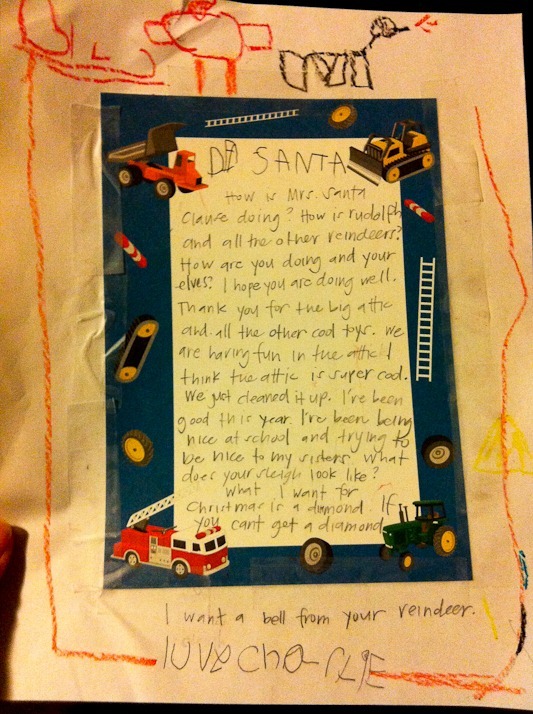 DA SANTA
How is Mrs. Santa
Clause doing? How is rudolph
and all the other reindeers?
How are you doing and your
elves? I hope you are doing well.
Thank you for the big attic
and all the other cool toys. We
are having fun in the attic! I
think the attic is super cool.
We just cleaned it up. I've been
good this year. I've been being
nice at school and trying to
be nice to my sisters. What
does your sleigh look like?
What I want for
Christmas is a diamond. If
you cant get a diamond
I want a bell from your reindeer.
love chARLIE